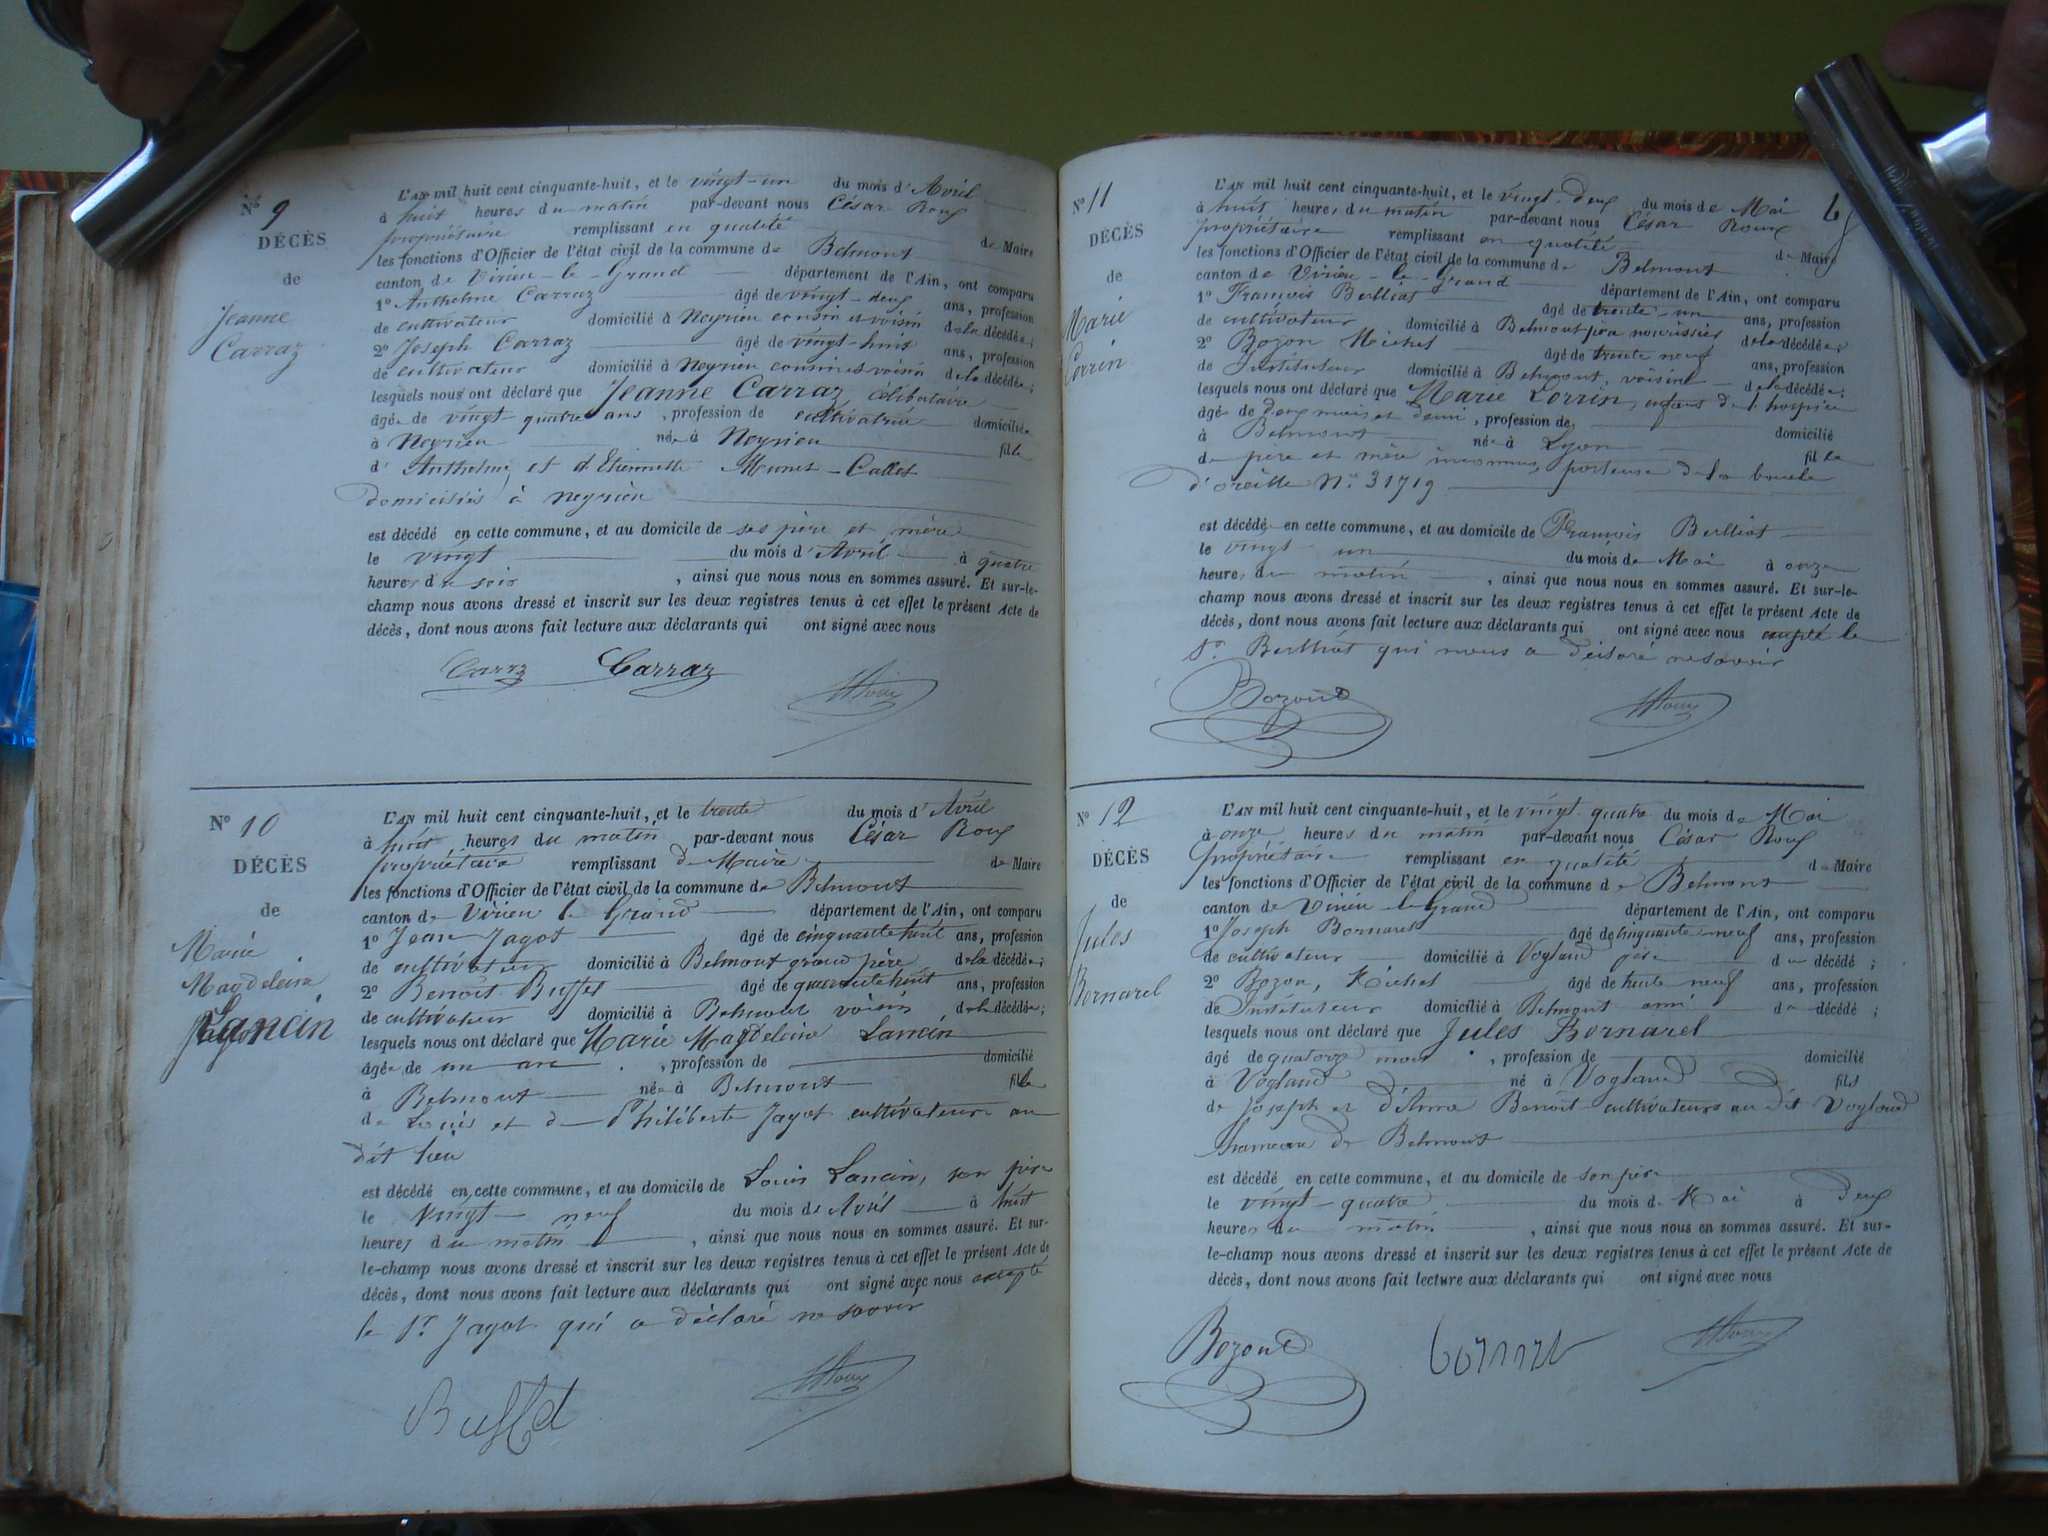 N° 9
DÉCÈS
de
Jeanne
Carraz
L'AN mil huit cent cinquante-huit, et le vingt-un du mois d'Avril
à huit heures du matin par-devant nous César Roux
propriétaire remplissant en qualité de Maire
les fonctions d'Officier de l'état civil de la commune de Belmont
canton de Virieu-le-Grand département de l'Ain, ont comparu
1° Anthelme Carraz âgé de vingt-deux ans, profession
de cultivateur domicilié à Neyrieu cousin et voisin de la décédée;
2° Joseph Carraz âgé de vingt-huit ans, profession
de cultivateur domicilié à Neyrieu cousin et voisin de la décédée;
lesquels nous ont déclaré que Jeanne Carraz célibataire
âgée de vingt quatre ans, profession de cultivatrice domiciliée
à Neyrieu née à Neyrieu fille
d'Anthelme, et d'Etiennette Munet-Callet
domiciliés à Neyrieu
est décédé en cette commune, et au domicile de ses père et mère
le vingt du mois d'Avril à quatre
heures du soir, ainsi que nous nous en sommes assuré. Et sur-le-
champ nous avons dressé et inscrit sur les deux registres tenus à cet effet le présent Acte de
décès, dont nous avons fait lecture aux déclarants qui ont signé avec nous
Carraz Carraz
N° 10
DÉCÈS
de
Marie
Magdeleine
Lancin
L'AN mil huit cent cinquante-huit, et le trente du mois d'Avril
à huit heures du matin par-devant nous César Roux
propriétaire remplissant de Maire de Maire
les fonctions d'Officier de l'état civil de la commune de Belmont
canton de Virieu le Grand département de l'Ain, ont comparu
1° Jean Jagot âgé de cinquante huit ans, profession
de cultivateur domicilié à Belmont grand père de la décédée;
2° Benoît Buffet âgé de quarante huit ans, profession
de cultivateur domicilié à Belmont voisin de la décédée;
lesquels nous ont déclaré que Marie Magdeleine Lancin
âgée de un an, profession de domicilié
à Belmont née à Belmont fille
de Louis et de Philiberte Jagot cultivateurs au
dit lieu
est décédé en cette commune, et au domicile de Louis Lancin, son père
le vingt-neuf du mois de Avril à huit
heures du matin, ainsi que nous nous en sommes assuré. Et sur-
le-champ nous avons dressé et inscrit sur les deux registres tenus à cet effet le présent Acte de
décès, dont nous avons fait lecture aux déclarants qui ont signé avec nous excepté
le Sr Jagot qui a déclaré ne savoir
Buffet
N° 11
DÉCÈS
de
Marie
Lorrin
L'AN mil huit cent cinquante-huit, et le vingt-deux du mois de Mai
à huit heures du matin par-devant nous César Roux
propriétaire remplissant en qualité de Maire
les fonctions d'Officier de l'état civil de la commune de Belmont
canton de Virieu-le-Grand département de l'Ain, ont comparu
1° François Berlliot âgé de trente-un ans, profession
de cultivateur domicilié à Belmont père nourissier de la décédée;
2° Bozon Michel âgé de trente neuf ans, profession
de Instituteur domicilié à Belmont, voisin de la décédée;
lesquels nous ont déclaré que Marie Lorrin, enfant de l'hospice
âgée de deux mois et demi, profession de domicilié
à Belmont née à Lyon fille
de père et mère inconnus, porteuse de la boucle
d'oreille N° 31719
est décédée en cette commune, et au domicile de François Berlliot
le vingt un du mois de Mai à onze
heures du matin, ainsi que nous nous en sommes assuré. Et sur-le-
champ nous avons dressé et inscrit sur les deux registres tenus à cet effet le présent Acte de
décès, dont nous avons fait lecture aux déclarants qui ont signé avec nous excepté le
Sr Berlliot qui nous a déclaré ne savoir
Bozon
N° 12
DÉCÈS
de
Jules
Bornarel
L'AN mil huit cent cinquante-huit, et le vingt quatre du mois de Mai
à onze heures du matin par-devant nous César Roux
propriétaire remplissant en qualité de Maire
les fonctions d'Officier de l'état civil de la commune de Belmont
canton de Virieu-le-Grand département de l'Ain, ont comparu
1° Joseph Bornarel âgé de cinquante neuf ans, profession
de cultivateur domicilié à Vogland père du décédé;
2° Bozon, Michel âgé de trente neuf ans, profession
de Instituteur domicilié à Belmont ami du décédé;
lesquels nous ont déclaré que Jules Bornarel
âgé de quatorze mois, profession de domicilié
à Vogland né à Vogland fils
de Joseph et d'Anna Benoît cultivateurs au dit Vogland
hameau de Belmont
est décédé en cette commune, et au domicile de son père
le vingt-quatre du mois de Mai à deux
heures du matin, ainsi que nous nous en sommes assuré. Et sur-
le-champ nous avons dressé et inscrit sur les deux registres tenus à cet effet le présent Acte de
décès, dont nous avons fait lecture aux déclarants qui ont signé avec nous
Bozon